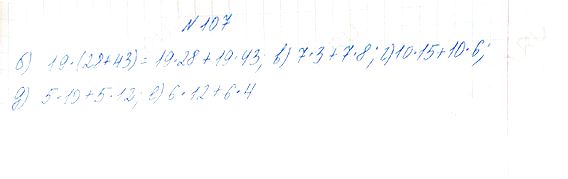 №107
б) 19·(28+43)=19·28+19·43; в) 7·3+7·8; г)10·15+10·6;
д) 5·10+5·12; е) 6·12+6·4